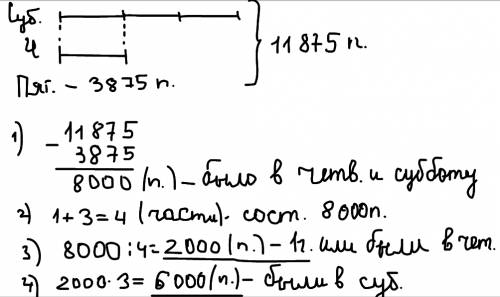 Суб.
Ч
11875 п.
Пят. - 3875 п.
1) - 11875
3875
8000 (п.) - было в четв. и субботу
2) 1+3=4 (части) - сост. 8000п.
3) 8000:4=2000 (п.) - 1ч. или были в чет.
4) 2000·3=6000 (п.) - были в суб.